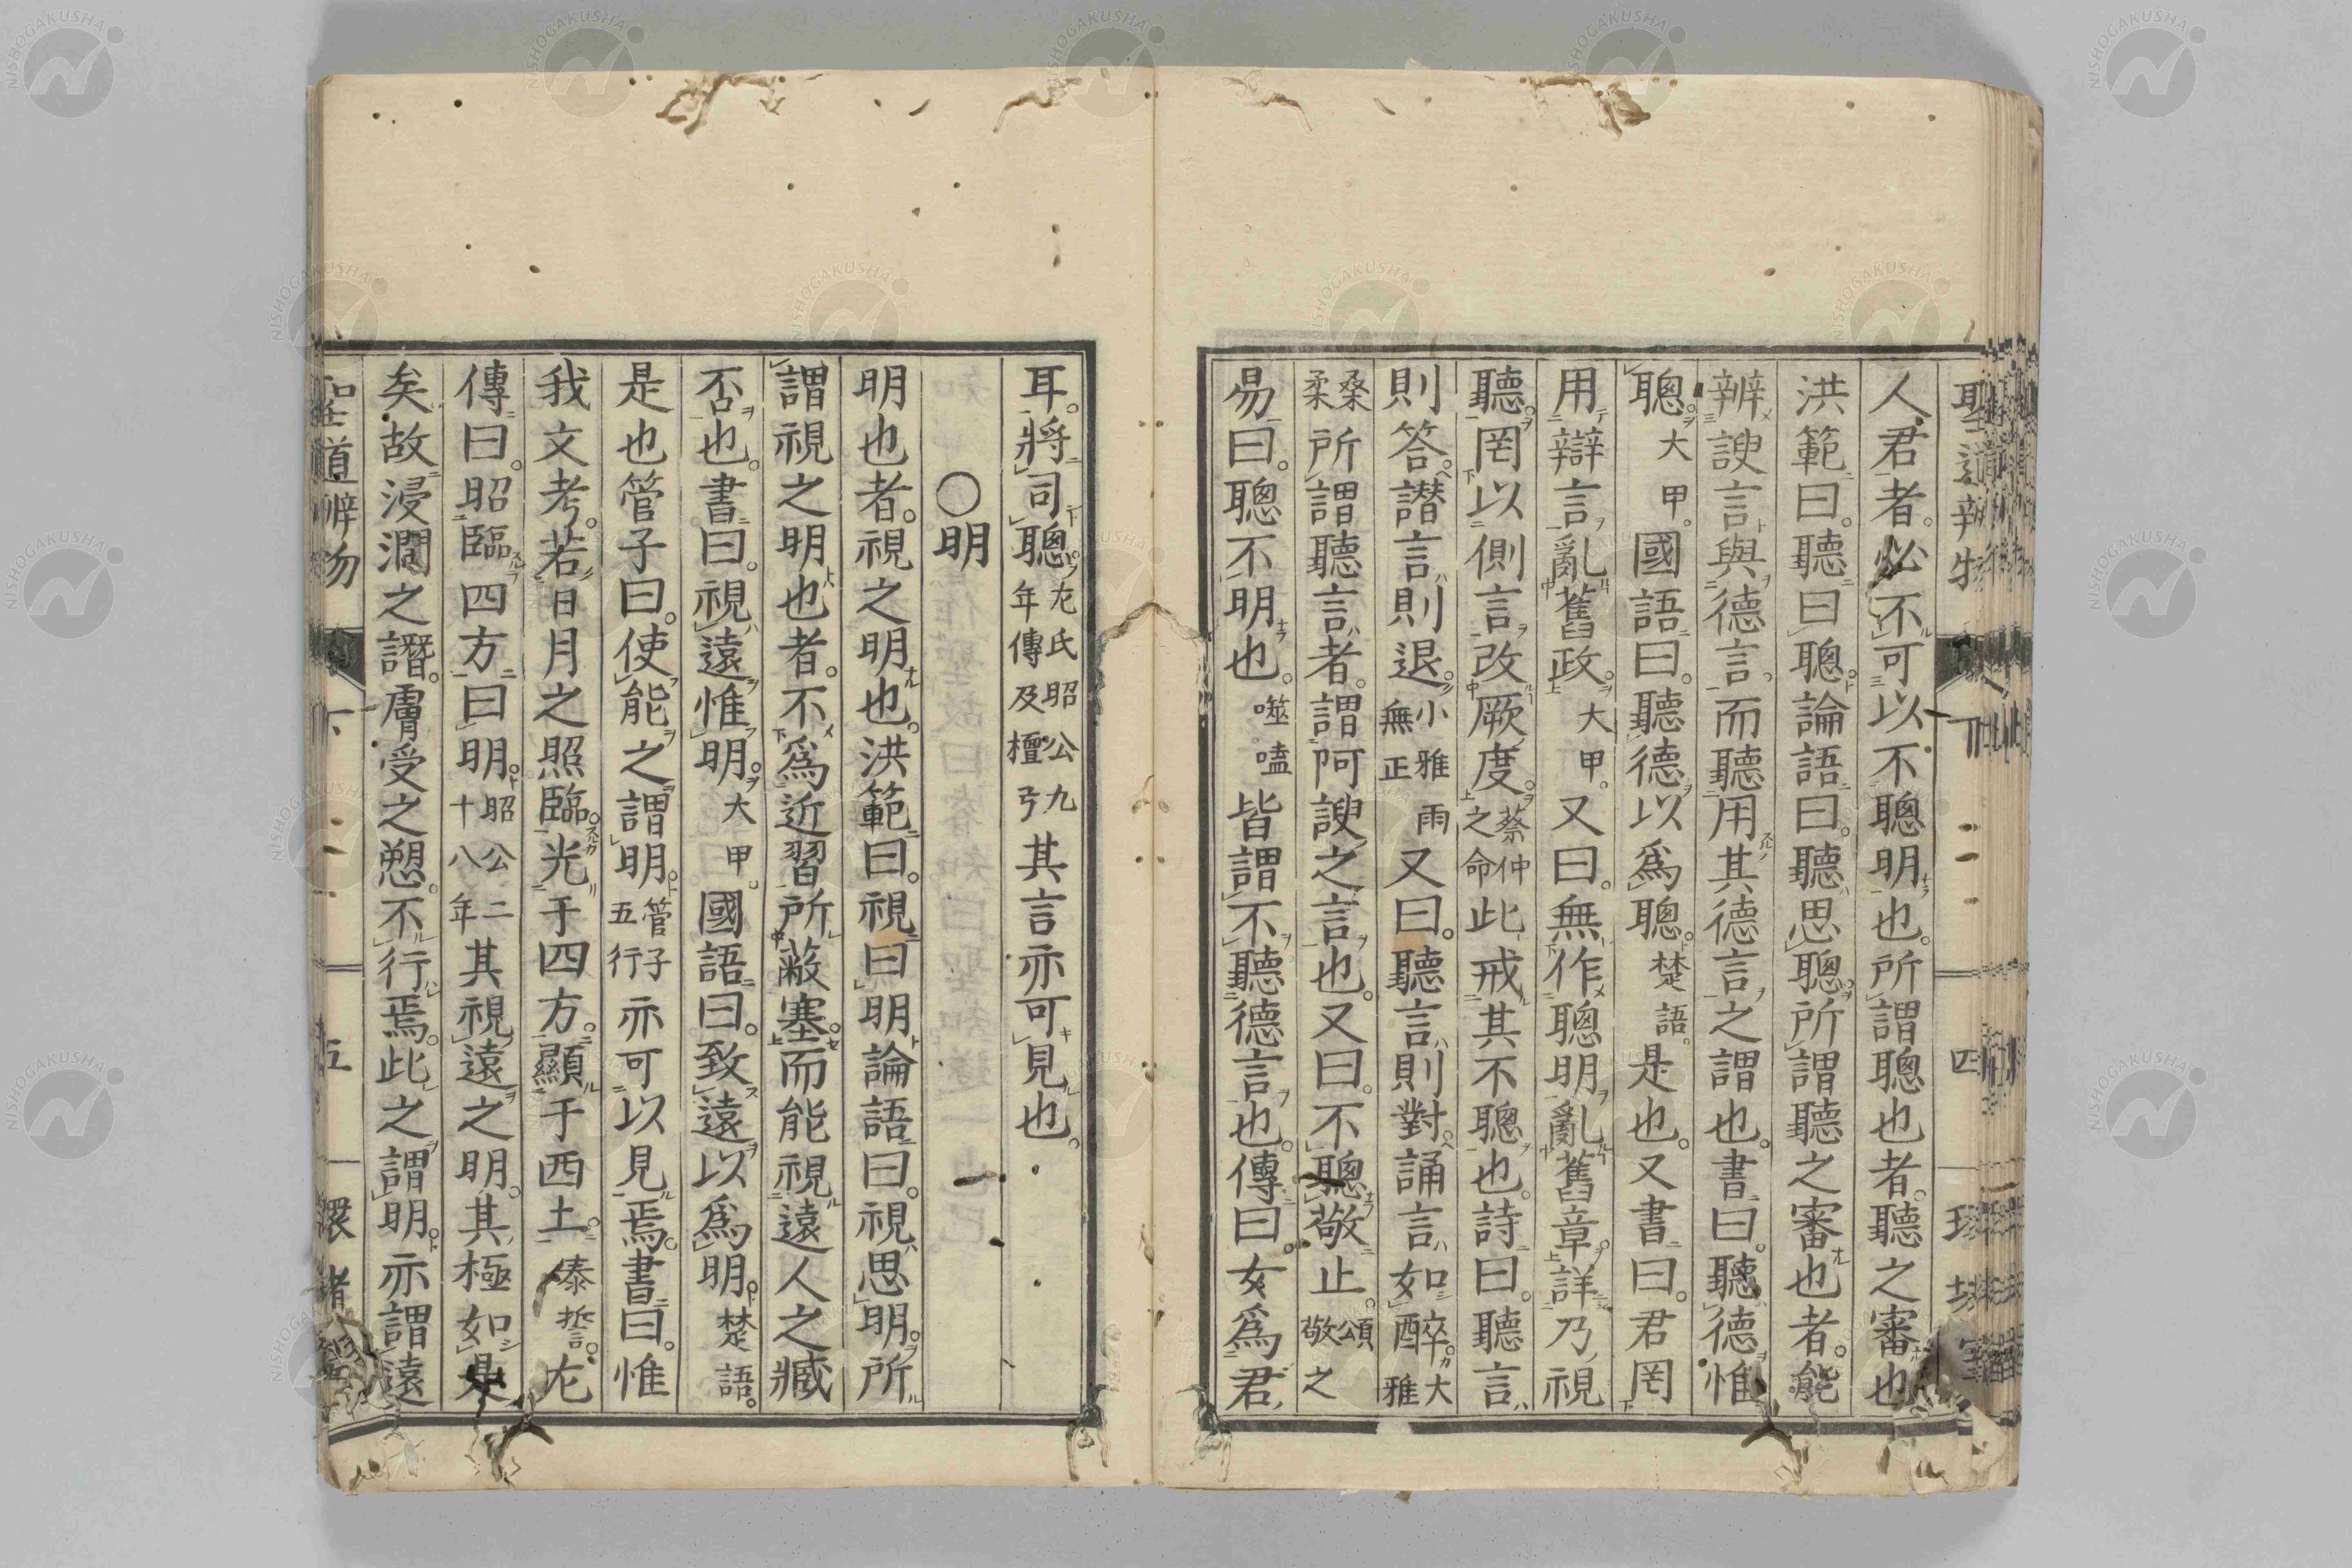 人君者必不可以不聰明也。所謂聰也者。聽之審也
洪範曰。聽曰聰。論語曰。聽思聰。所謂聽之審也者。能
辨諛言與德言而聽用其德言之謂也。書曰。聽德惟
聰。大甲。國語曰。聽德以爲聰。楚語。是也。又書曰。君罔
用辯言亂舊政。大甲。又曰。無作聰明亂舊章。詳乃視
聽。罔以側言改厥度。蔡仲之命此戒其不聰也。詩曰。聽言
則答。譖言則退。小雅雨無正又曰。聽言則對。誦言如醉。大雅
桑柔所謂聽言者。謂阿諛之言也。又曰。不聰敬止。頌敬之
易曰。聰不明也。噬嗑皆謂不聽德言也。傳曰。女爲君
耳。將司聰。左氏昭公九年傳及檀弓其言亦可見也。
○明
明也者。視之明也。洪範曰。視曰明論語曰。視思明。所
謂視之明也者。不爲近習所蔽塞。而能視遠人之臧
否也。書曰。視遠惟明。大甲。國語曰。致遠以爲明。楚語。
是也管子曰。使能之謂明。管子五行亦可以見焉。書曰。惟
我文考。若日月之照臨。光于四方。顯于西土。泰誓。左
傳曰。昭臨四方曰明。昭公二十八年其視遠之明。其極如是
矣。故浸潤之譖。膚受之愬。不行焉。此之謂明。亦謂遠
聖道辨物 下 五 環堵
聖道辨物 下 二 四 環堵室
NISHOGAKUSHA